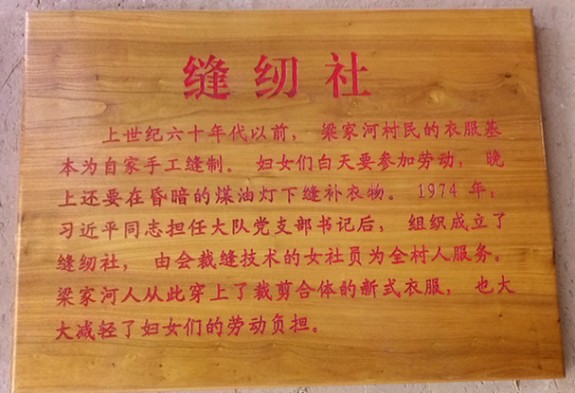 缝纫社
上世纪六十年代以前，梁家河村民的衣服基
本为自家手工缝制。妇女们白天要参加劳动，晚
上还要在昏暗的煤油灯下缝补衣物。1974年，
习近平同志担任大队党支部书记后，组织成立了
缝纫社，由会裁缝技术的女社员为全村人服务。
梁家河人从此穿上了裁剪合体的新式衣服，也大
大减轻了妇女们的劳动负担。